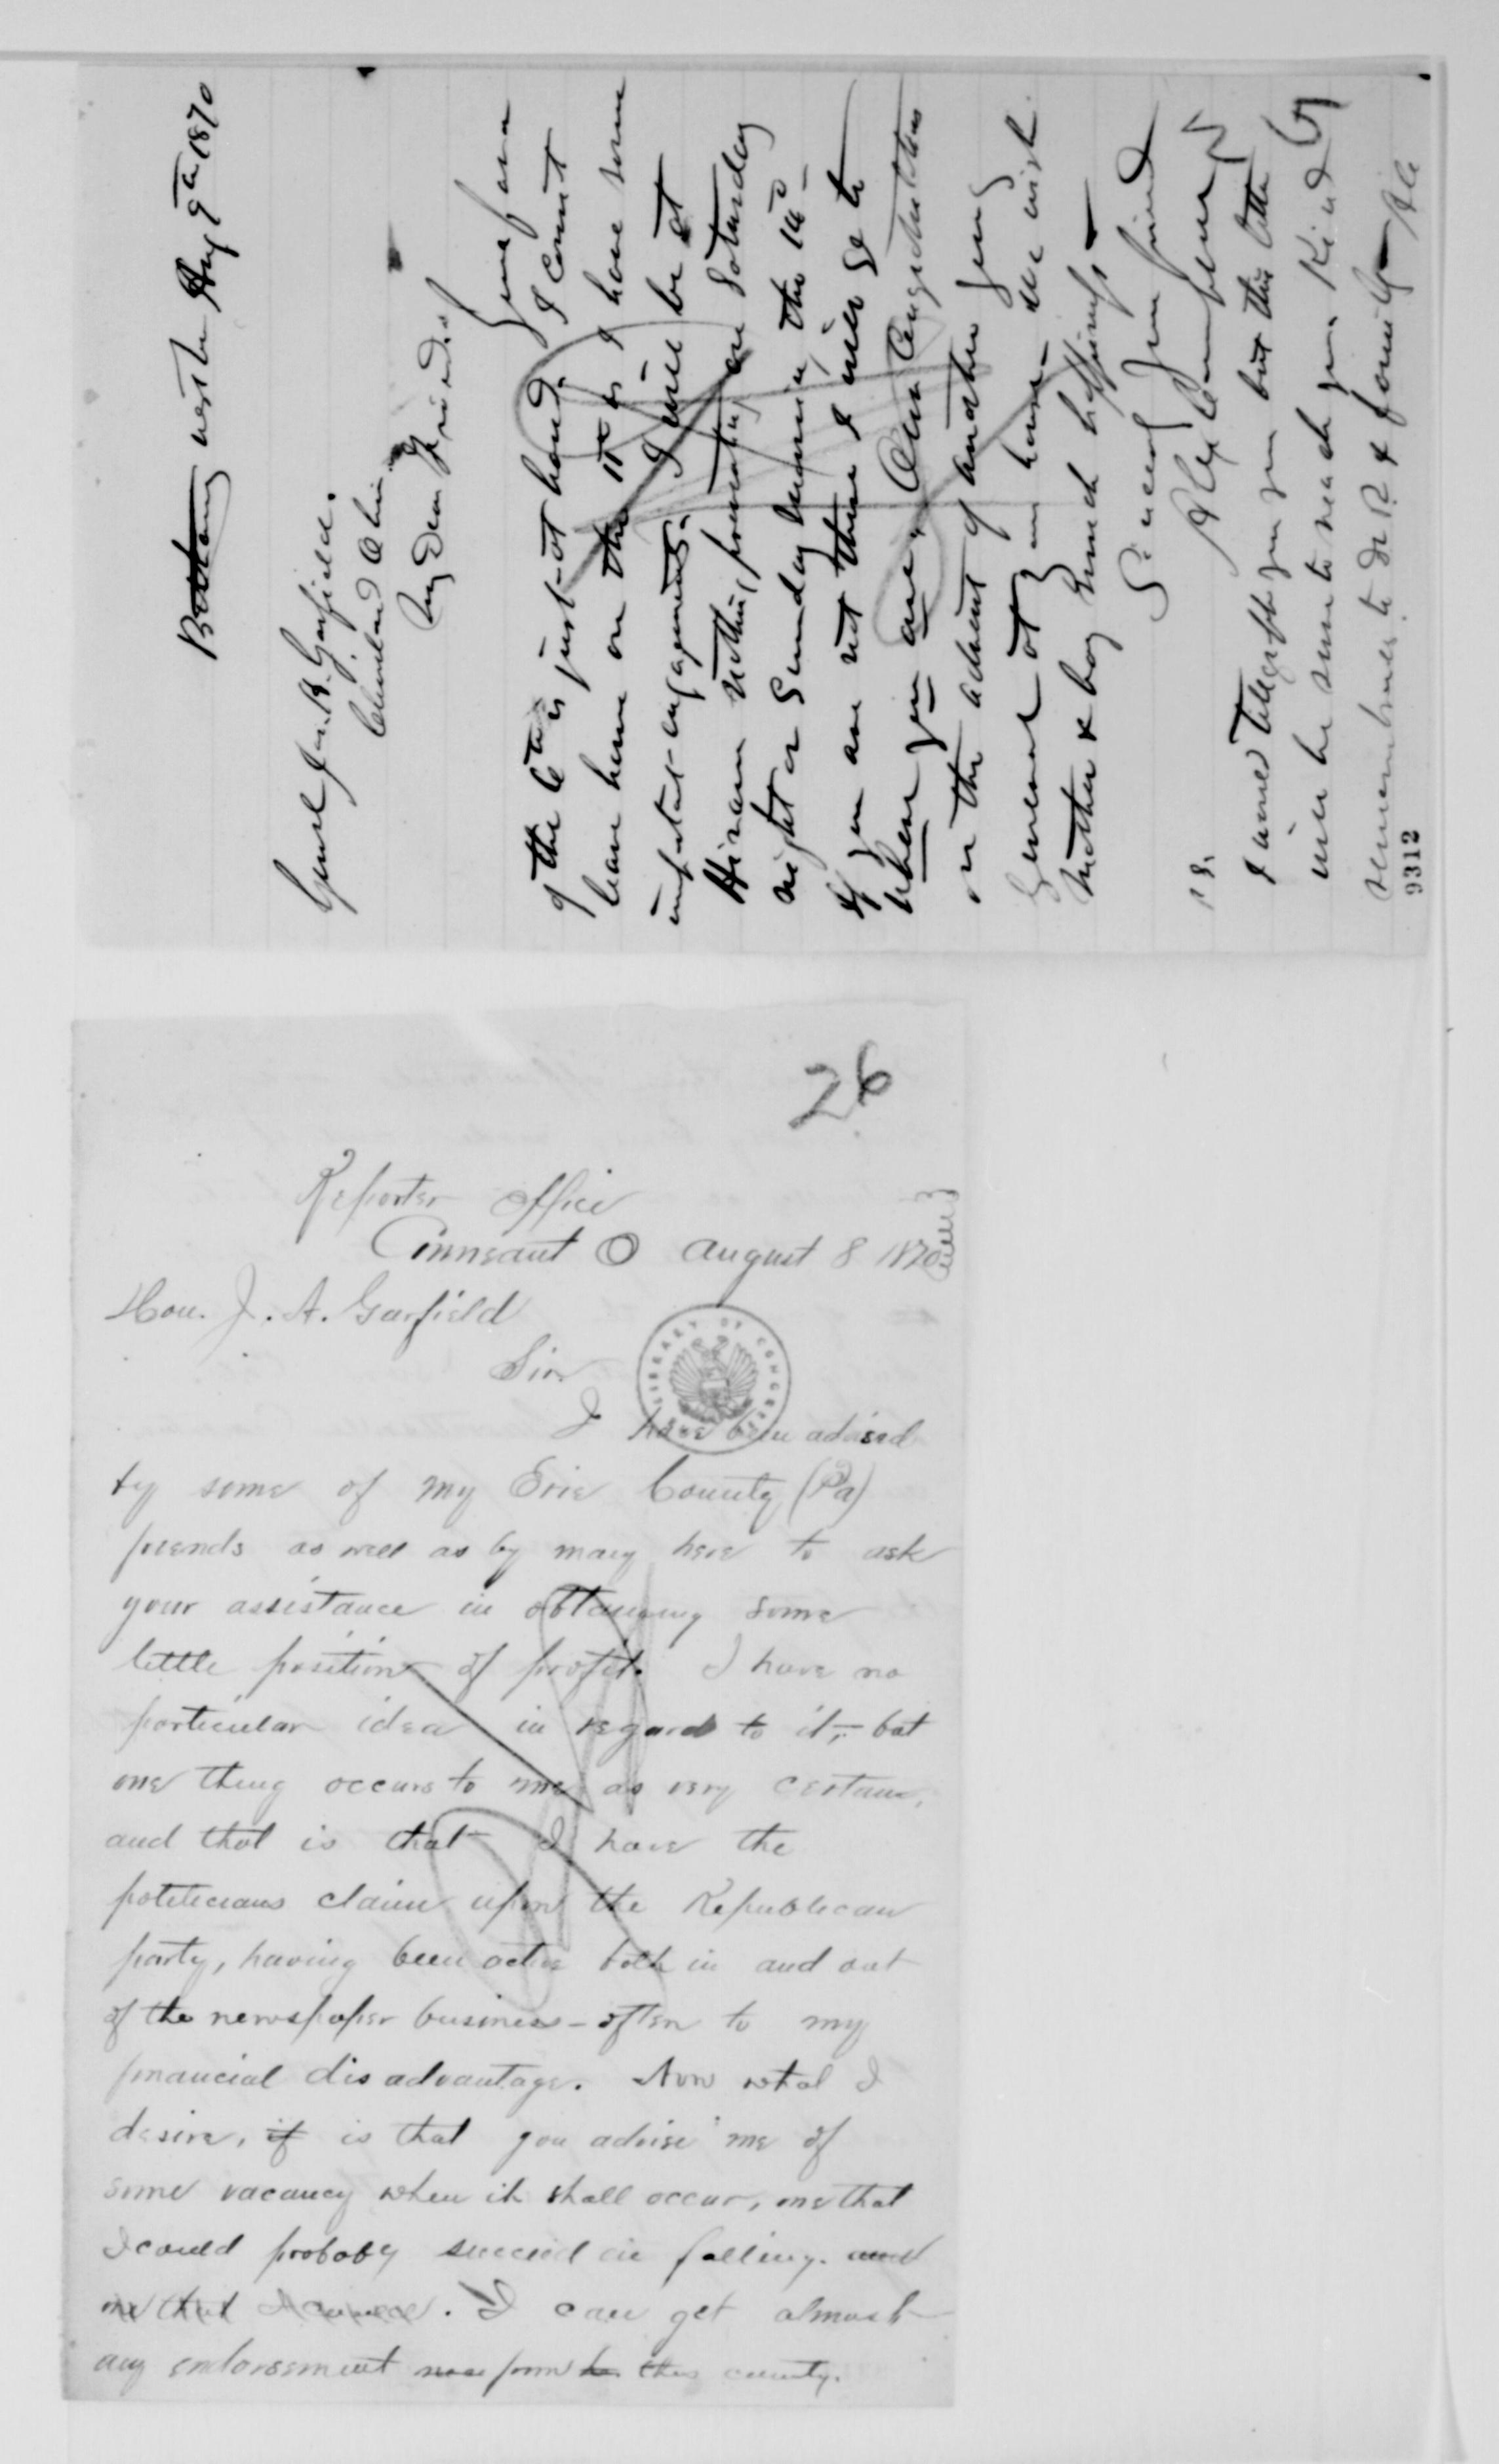 Bethany west Va Aug 9th 1870
Genel Jas. A. Garfield.
Cleveland Ohio
My Dear Friend
Your fava
of the 6th is just at hand. I cannot
leave home on the 11th as I have some
important engagements. I will be at
Hiram nothing preventing, on Saturday
night or Sunday morning the 14th
If you are not there I will go to
where you are. Our Congratulations
on the advent of another young
General at your house. We wish
Mother & boy much happiness
Sincerely Your friend
Alex Campbell
P.S.
I would telegraph you but this letter
will be sure to reach you. Kind
remembrances to Dr R. & family
9312
26
Reporter Office
Conneaut O August 8 1870
Hon. J. A. Garfield
Sir
LIBRARY OF CONGRESS
I have been advised
by some of my Erie County (Pa)
friends as well as by many here to ask
your assistance in obtaining some
little position of profit. I have no
particular idea in regard to it, – but
one thing occurs to me as very certain,
and that is that I have the
politicians claim upon the Republican
party, having been active both in and out
of the newspaper business – often to my
financial disadvantage. Now what I
desire, if is that you advise me of
some vacancy when it shall occur, one that
I could probably succeed in filling. and
one that I could. I can get almost
any endorsement from this county.